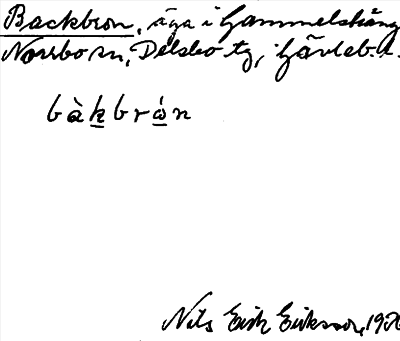 Backbron, äga i Gammelsträng
Norrbo sn, Delsbo tg, Gävleb. l.
bàkbrón
Nils Erik Eriksson, 19